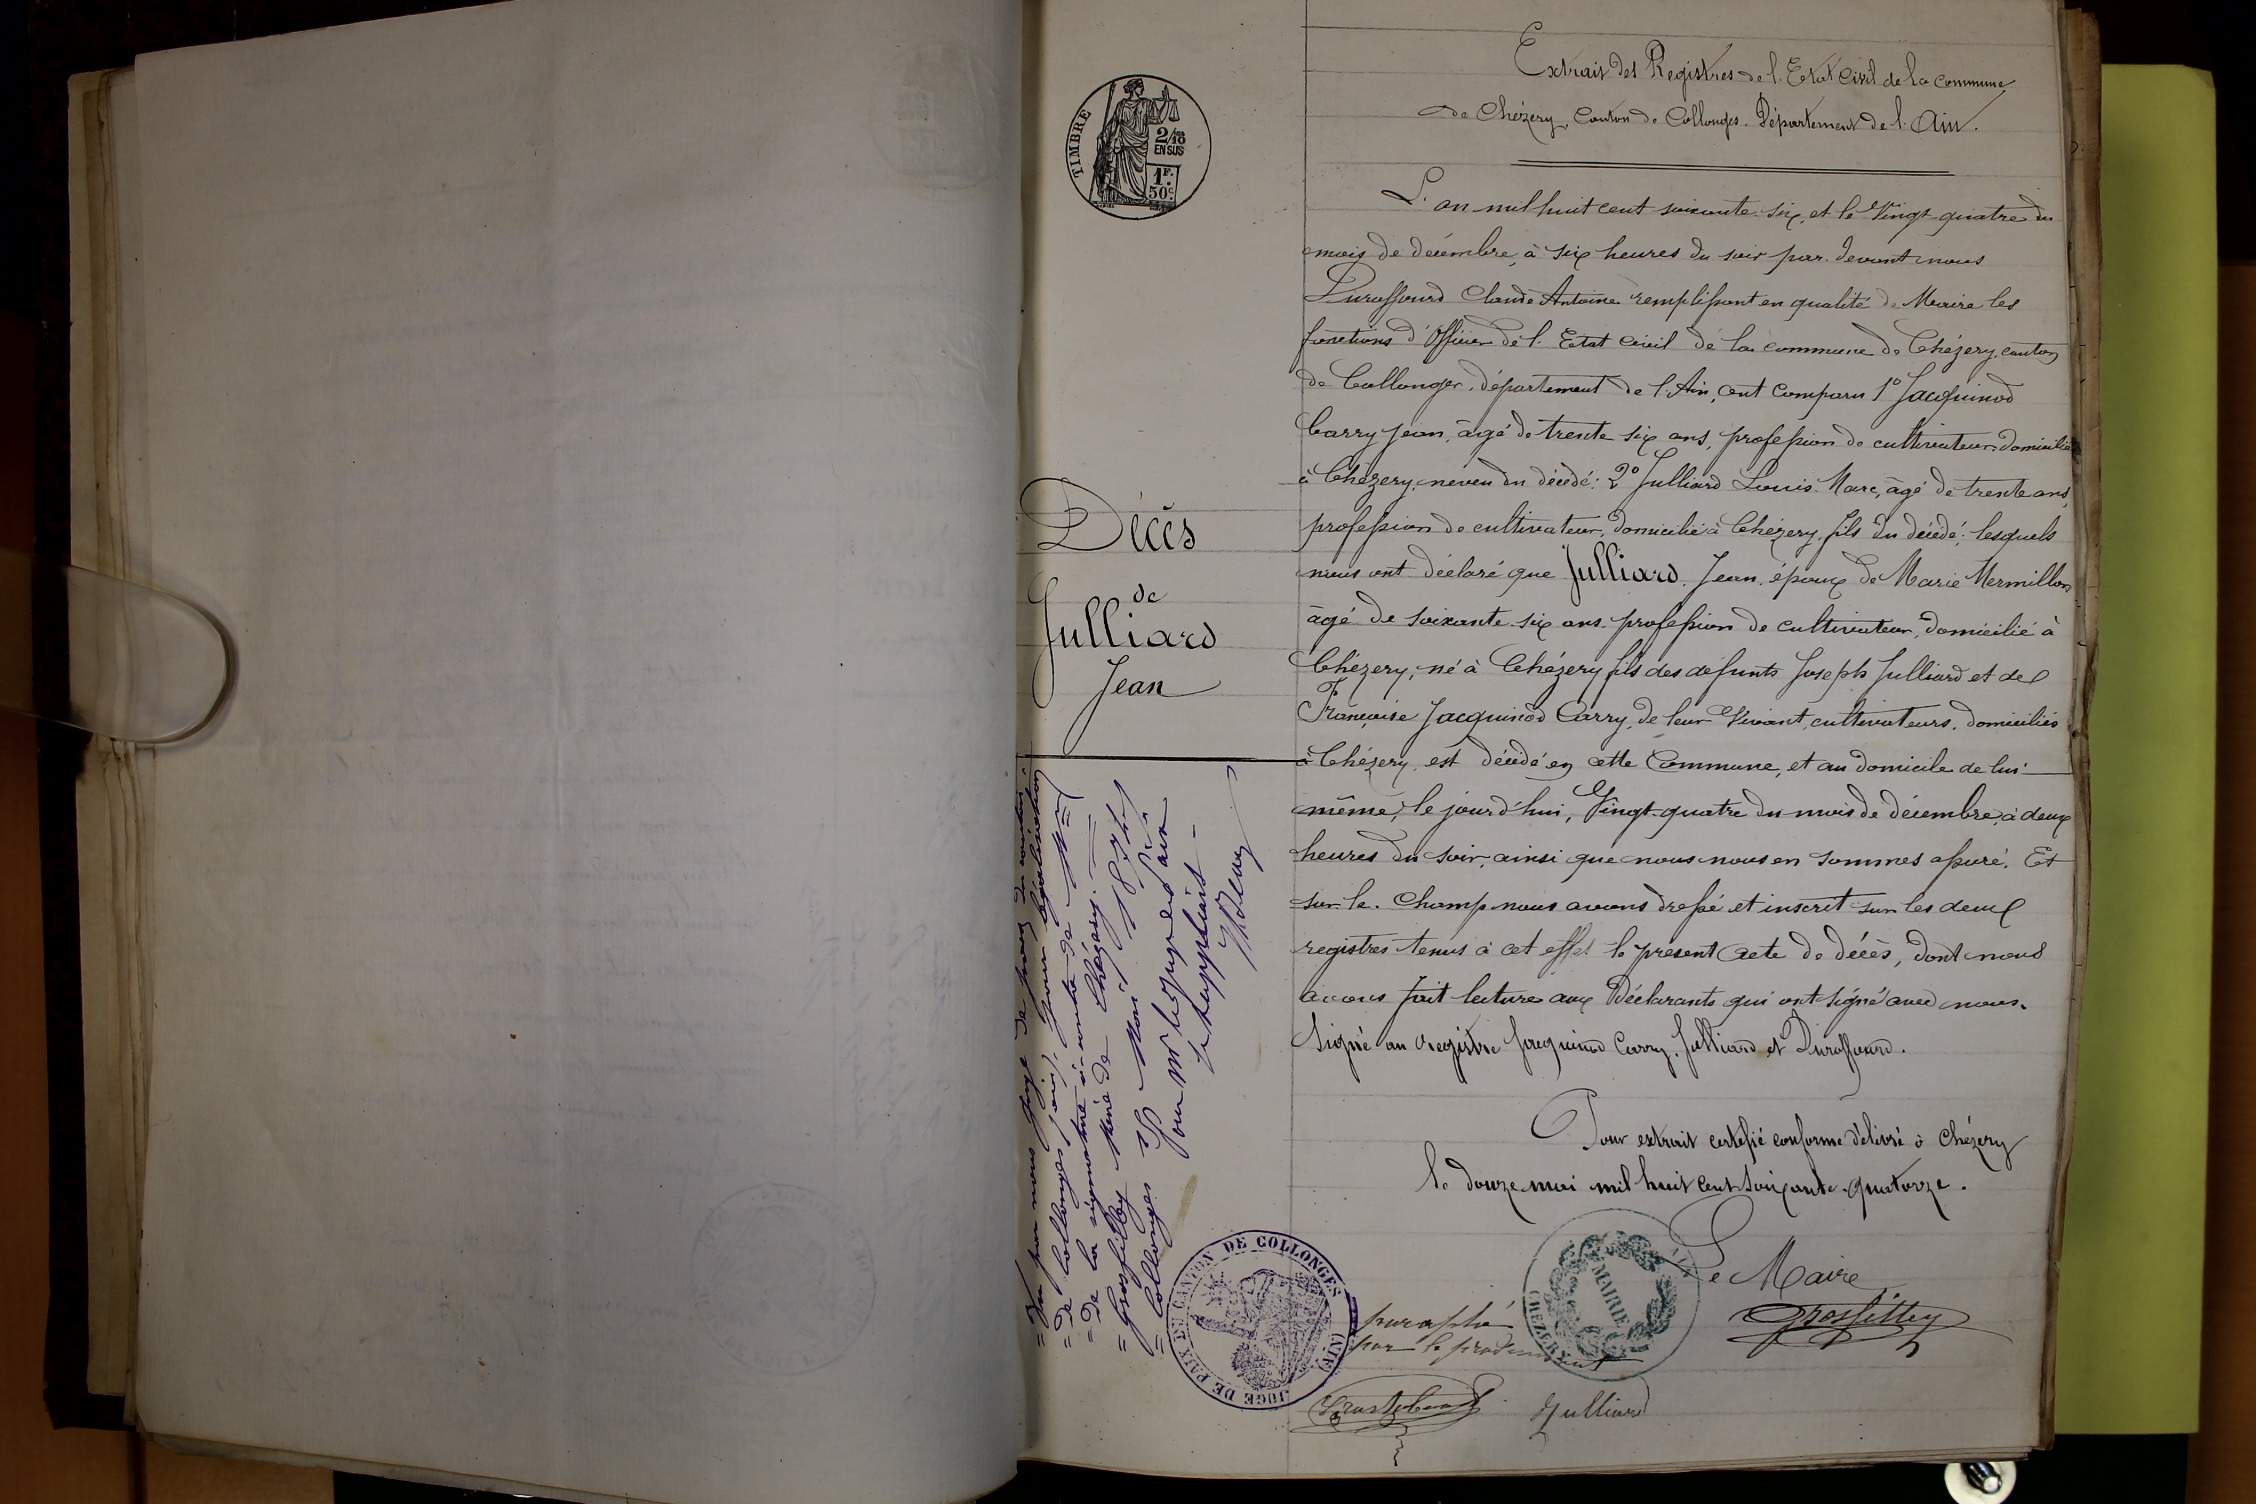 Extrait des Registres de l'Etat Civil de la commune
de Chézery, Canton de Collonges. Département de l'Ain.
TIMBRE
2/10
EN SUS
1F.
50c.
L'an mil huit cent soixante-six, et le Vingt-quatre du
mois de décembre, à six heures du soir par-devant nous
Duraffourd Claude Antoine remplissant en qualité de Maire les
fonctions d'Officier de l'Etat Civil de la commune de Chézery, canton
de Collonges, département de l'Ain, ont comparu 1º Jacquinod
Carry Jean, âgé de trente six ans, profession de cultivateur, domicilié
à Chézery, neveu du décédé: 2º Julliard Louis Marc, âgé de trente ans,
profession de cultivateur, domicilié à Chézery, fils du décédé; lesquels
nous ont déclaré que Julliard Jean, époux de Marie Mermillon
âgé de soixante-six ans profession de cultivateur, domicilié à
Chézery, né à Chézery fils des défunts Joseph Julliard et de
Françoise Jacquinod Carry, de leur Vivant cultivateurs, domiciliés
à Chézery, est décédé en cette Commune, et au domicile de lui-
même, le jourd'hui, Vingt-quatre du mois de décembre, à deux
heures du soir, ainsi que nous nous en sommes assuré. Et
sur-le-Champ nous avons dressé et inscrit sur les deux
registres tenus à cet effet le présent Acte de décès, dont nous
avons fait lecture aux Déclarants qui ont signé avec nous.
Signé au registre Jacquinod Carry, Julliard et Duraffourd.
Décès
de
Julliard
Jean
Pour extrait certifié conforme délivré à Chézery
le douze mai mil huit cent soixante-quatorze.
Le Maire
Grosfilley
= Vu par nous Juge de paix du canton
= de Collonges (ain), pour légalisation
= de la signature ci-contre de Mr
= Grosfilley Maire de Chézery.
= Collonges 13 Mai 1874
Pour Mr le Juge de Paix
le suppléant
JUGE DE PAIX DU CANTON DE COLLONGES (AIN)
MAIRIE
CHÉZERY
paraphé
par le président
Julliard